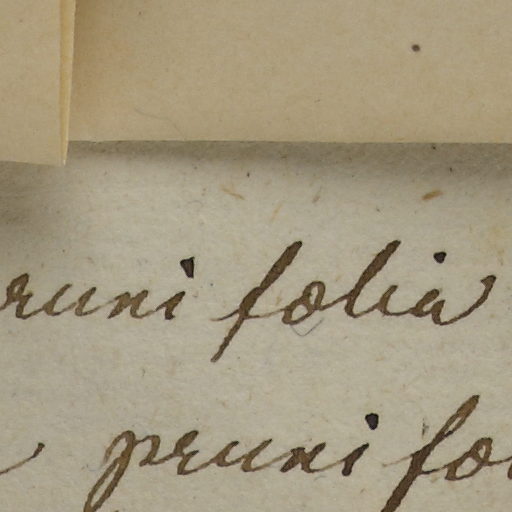 runi fœlia
pruni fœ